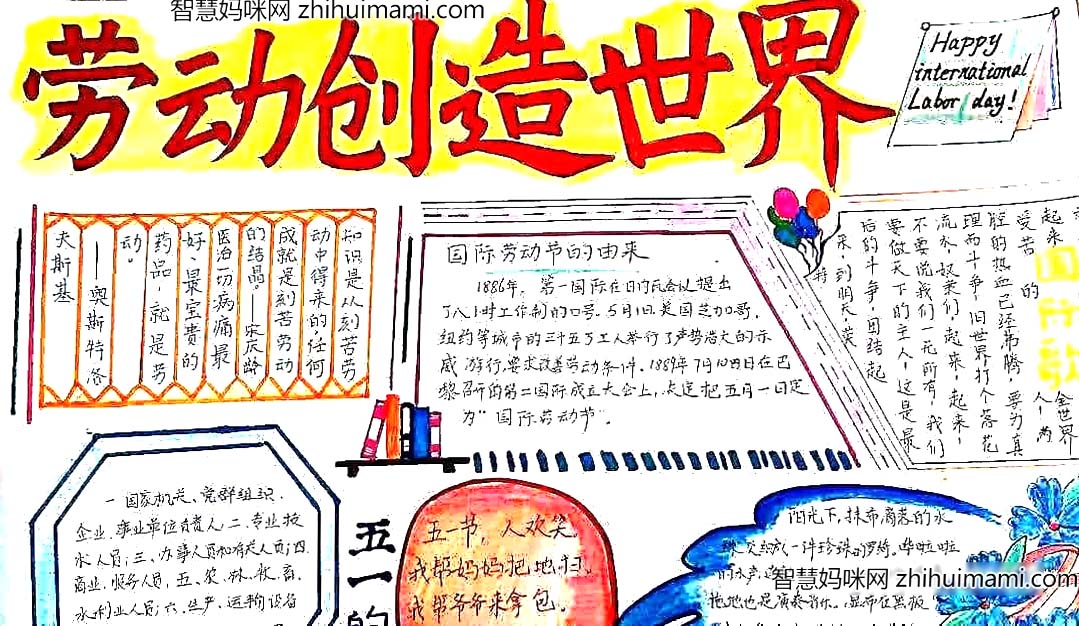 智慧妈咪网 zhihuimami.com
劳动创造世界
Happy
international
Labor day!
知识是从刻苦劳
动中得来的,任何
成就是刻苦劳动
的结晶——宋庆龄
医治一切病痛最
好、最宝贵的
药品,就是劳
动。
——奥斯特洛
夫斯基
国际劳动节的由来
1886年,第一国际在日内瓦会议提出
了八小时工作制的口号。5月1日美国芝加哥,
纽约等城市的三十五万工人举行了声势浩大的示
威游行,要求改善劳动条件。1889年7月14日在巴
黎召开的第二国际成立大会上,决定把五月一日定
为"国际劳动节"。
国际歌
起来
受苦的
全世界
人!满
腔的热血已经沸腾,要为真
理而斗争!旧世界打个落花
流水,奴隶们,起来,起来!
不要说我们一无所有,我们
要做天下的主人!这是最
后的斗争,团结起
来,到明天英
特
一国家机关、党群组织、
企业、事业单位负责人,二、专业技
术人员;三、办事人员和有关人员;四、
商业、服务人员,五、农、林、牧、畜、
水利业人员;六、生产、运输设备
五一的
五一节,人欢笑。
我帮妈妈把地扫。
我帮爷爷来拿包。
阳光下,抹布滴落的水
珠,交织成一珠珍珠的罗绮。哗啦啦
的水声,
智慧妈咪网 zhihuimami.com
拖地也是演奏音乐。